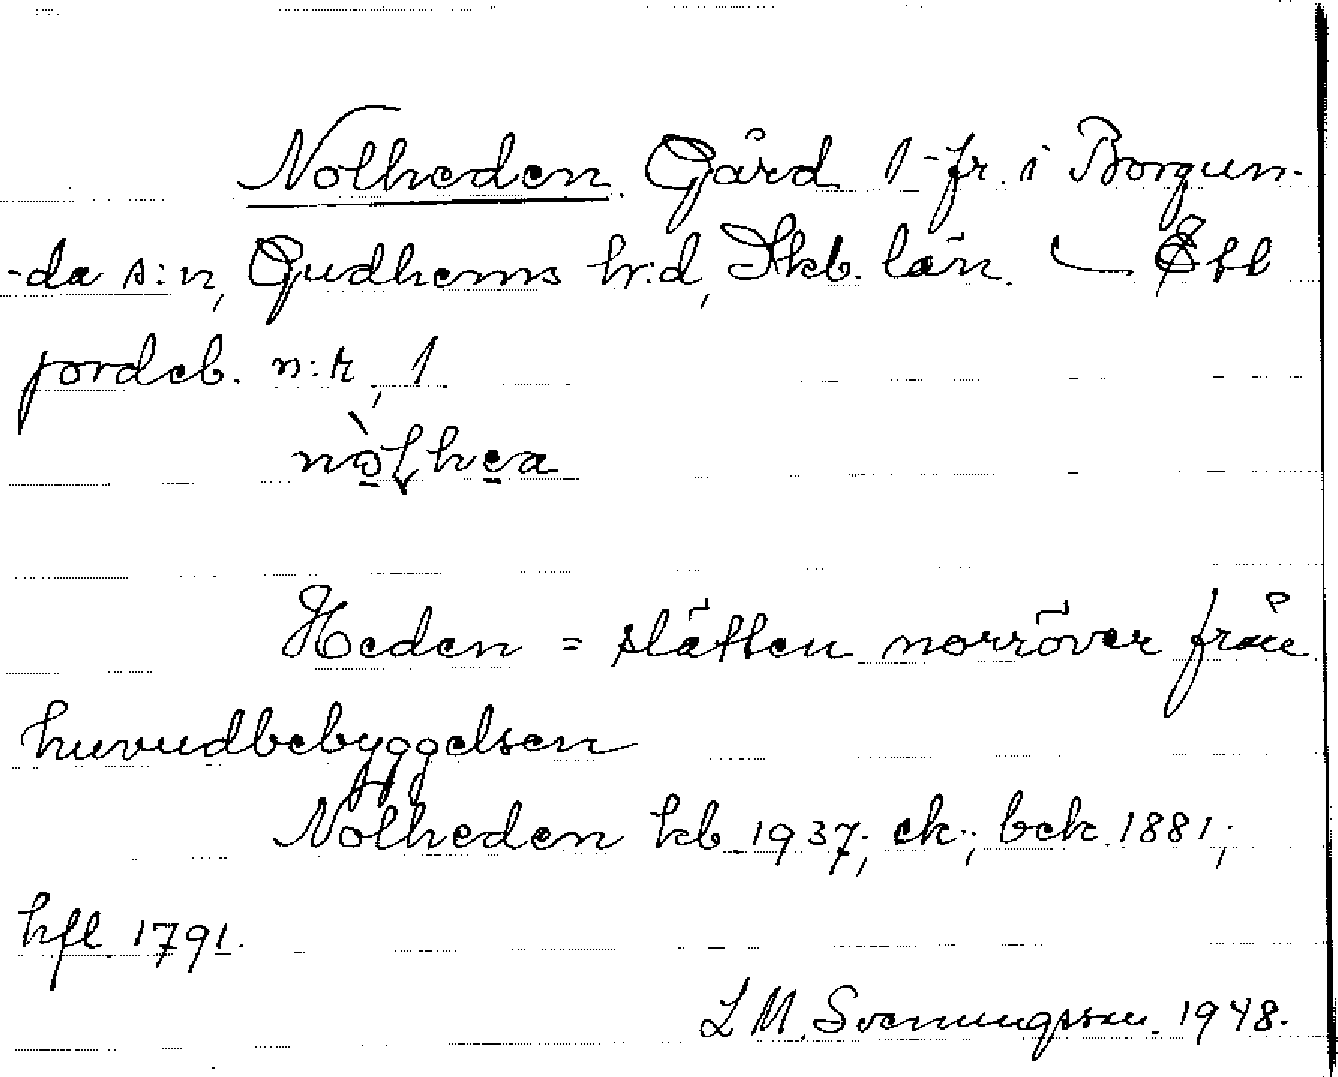 Nolheden. Gård 1-fr. i Borgun-
-da s:n, Gudhems hr:d, Skb. län.
jordeb. n:r, 1
Heden = slätten norröver från
huvudbebyggelsen
Nolheden kb 1937; ek.; bek 1881;
hfl 1791.
L M. Svenungsson. 1948.